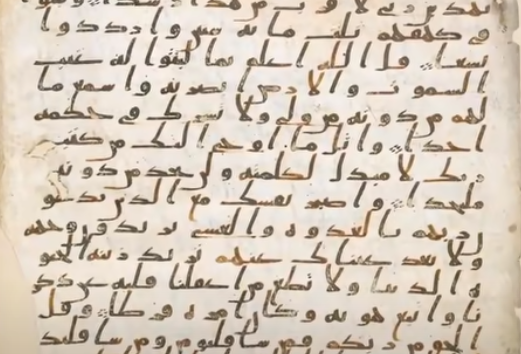 يهدين ربي لاقرب من هذا رشدا
في كهفهم ثلث مائة سنين وازدادوا
تسعا قل الله اعلم بما لبثوا له غيب
السموت والارض ابصر به واسمع ما
لهم من دونه من ولي ولا يشرك في حكمه
احدا واتل ما اوحي اليك من كتب
ربك لا مبدل لكلمته ولن تجد من دونه
ملتحدا واصبر نفسك مع الذين يدعو
ن ربهم بالغدوة والعشي يريدون وجهه
ولا تعد عيناك عنهم تريد زينة الحيو
ة الدنيا ولا تطع من اغفلنا قلبه عن ذكر
نا واتبع هويه وكان امره فرطا وقل
الحق من ربكم فمن شا فليومن ومن شا فليكفر